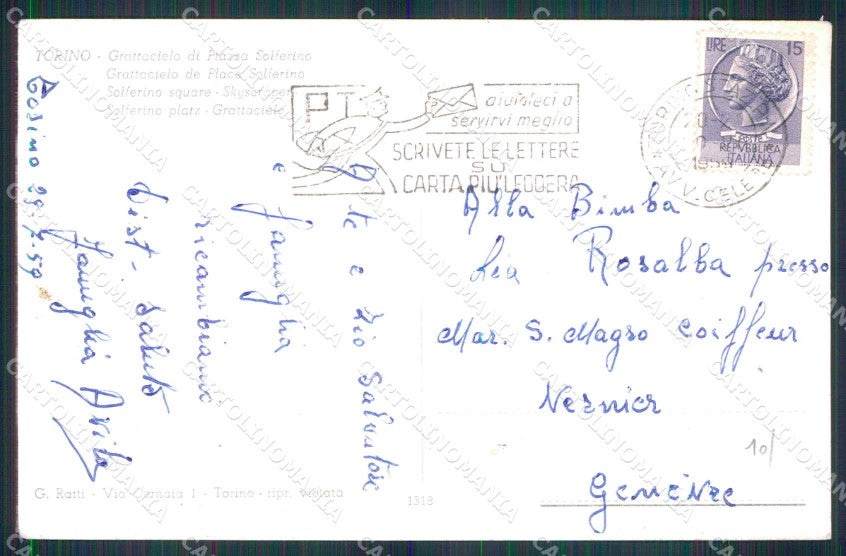 TORINO - Grattacielo di Piazza Solferino
Grattacielo de Place Solferino
Solferino square - Skyscraper
Solferino platz - Grattacielo
PT
aiutateci a
servirvi meglio
SCRIVETE LE LETTERE
SU
CARTA PIU' LEGGERA
LIRE 15
POSTE
REPVBBLICA
ITALIANA
Torino 29-7-59
A te e Zio Salvatore
e famiglia
ricambiamo
Dist- Saluti
Famiglia
Alla Bimba
Lia Rosalba presso
Mar. S. Magro Coiffeur
Nernier
Genève
10/
G. Ratti - Via Cernaia 1 - Torino - ripr. vietata
1318
CARTOLINOMANIA